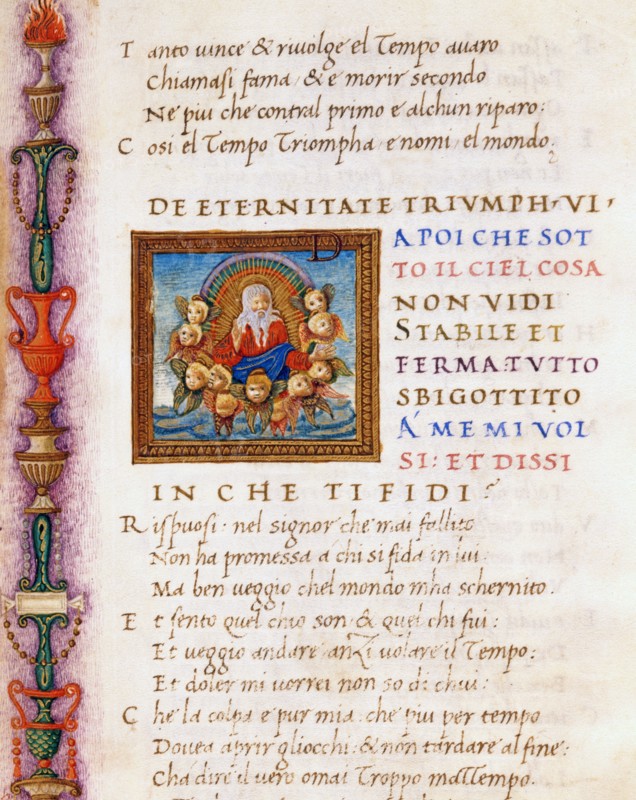 Tanto vince & rivolge el Tempo avaro
Chiamasi fama, & e morir secondo
Ne piu che contral primo e alchun riparo:
Cosi el Tempo Triompha e nomi, el mondo.
DE ETERNITATE TRIVMPH. VI.
D
A POI CHE SOT
TO IL CIEL COSA
NON VIDI
STABILE ET
FERMA: TVTTO
SBIGOTTITO
A ME MI VOL
SI: ET DISSI
IN CHE TI FIDI?
Rispuosi: nel signor che mai fallito
Non ha promessa a chi si fida in lui.
Ma ben veggio chel mondo mha schernito.
Et sento quel chio son, & quel chi fui:
Et veggio andare anzi volare il Tempo:
Et doler mi vorrei non so di chui:
Che la colpa e pur mia che piu per tempo
Dovea aprir gliocchi: & non tardare al fine:
Cha dire il vero omai Troppo mattempo.